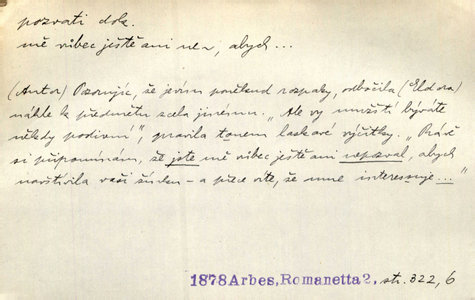 pozvati dok.
mě vůbec ještě ani ne~, abych ...
(Autor) Pozoruje, že jevím poněkud rozpaky, odbočila (Eldora)
náhle k předmětu zcela jinému. „Ale vy umístí býváte
někdy podivní“, pravila tonem laskavé výčitky. „Právě
si připomínám, že jste mě vůbec ještě ani nepozval, abych
navštívila vaši – a přece víte, že mne interessuje ...“
1878 Arbes, Romanetta 2, str. 322, 6